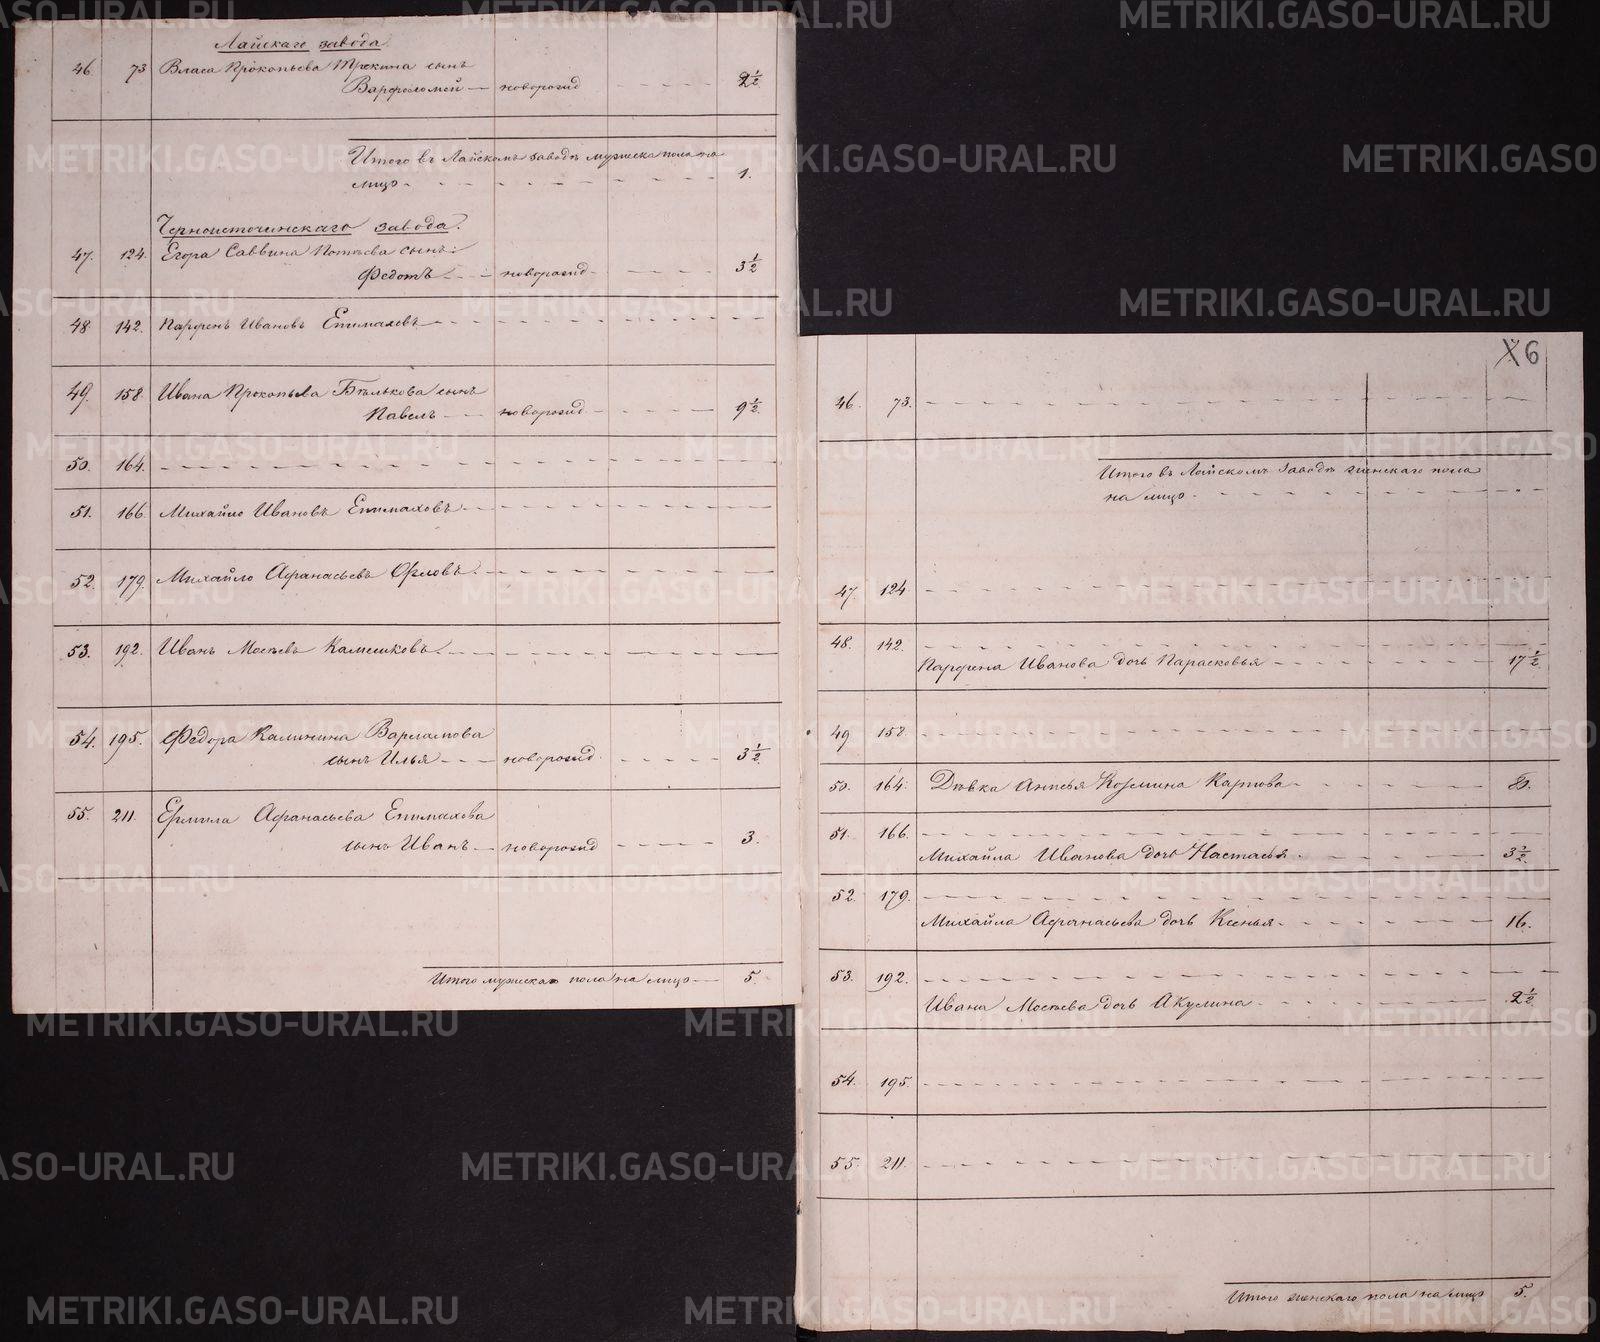 Лайскаго завода
46. 73 Власа Прокопьева Трекина сынъ
Варфоломей — новорожд - - - - 2 1/2
Итого въ Лайскомъ заводѣ мужеска пола на
лицо - - - - - - - 1.
Черноисточинскаго завода.
47. 124. Егора Саввина Потѣева сынъ:
Федотъ - - новорожд - - - - 3 1/2
48. 142. Парфенъ Ивановъ Епимаховъ - - - -
49. 158. Ивана Прокопьева Бѣлькова сынъ
Павелъ - - новорожд - - - - 9 1/2
50. 164. - - - - - - -
51. 166. Михайло Ивановъ Епимаховъ - - - -
52. 179. Михайло Афанасьевъ Орловъ - - - -
53. 192. Иванъ Мосѣевъ Камешковъ - - - -
54. 195. Федора Калинина Варламова
сынъ Илья - - новорожд - - - - 3 1/2
55. 211. Ермила Афанасьева Епимахова
сынъ Иванъ - - новорожд - - - - 3.
Итого мужеска пола на лицо — 5.
6
46. 73. - - - - - - -
Итого въ Лайскомъ Заводѣ женскаго пола
на лицо - - - - - - -
47. 124 - - - - - - -
48. 142. - - - - - - -
Парфена Иванова дочь Парасковья - - - - 17 1/2
49 158 - - - - - - -
50. 164. Дѣвка Анисья Козмина Карпова - - - - 8.
51. 166. - - - - - - -
Михайла Иванова дочь Настасья - - - - 3 1/2
52. 179. - - - - - - -
Михайла Афанасьева дочь Ксенья - - - - 16.
53. 192. - - - - - - -
Ивана Мосѣева дочь Акулина - - - - 2 1/2
54. 195. - - - - - - -
55. 211. - - - - - - -
Итого женскаго пола на лицо 5.
METRIKI.GASO-URAL.RU